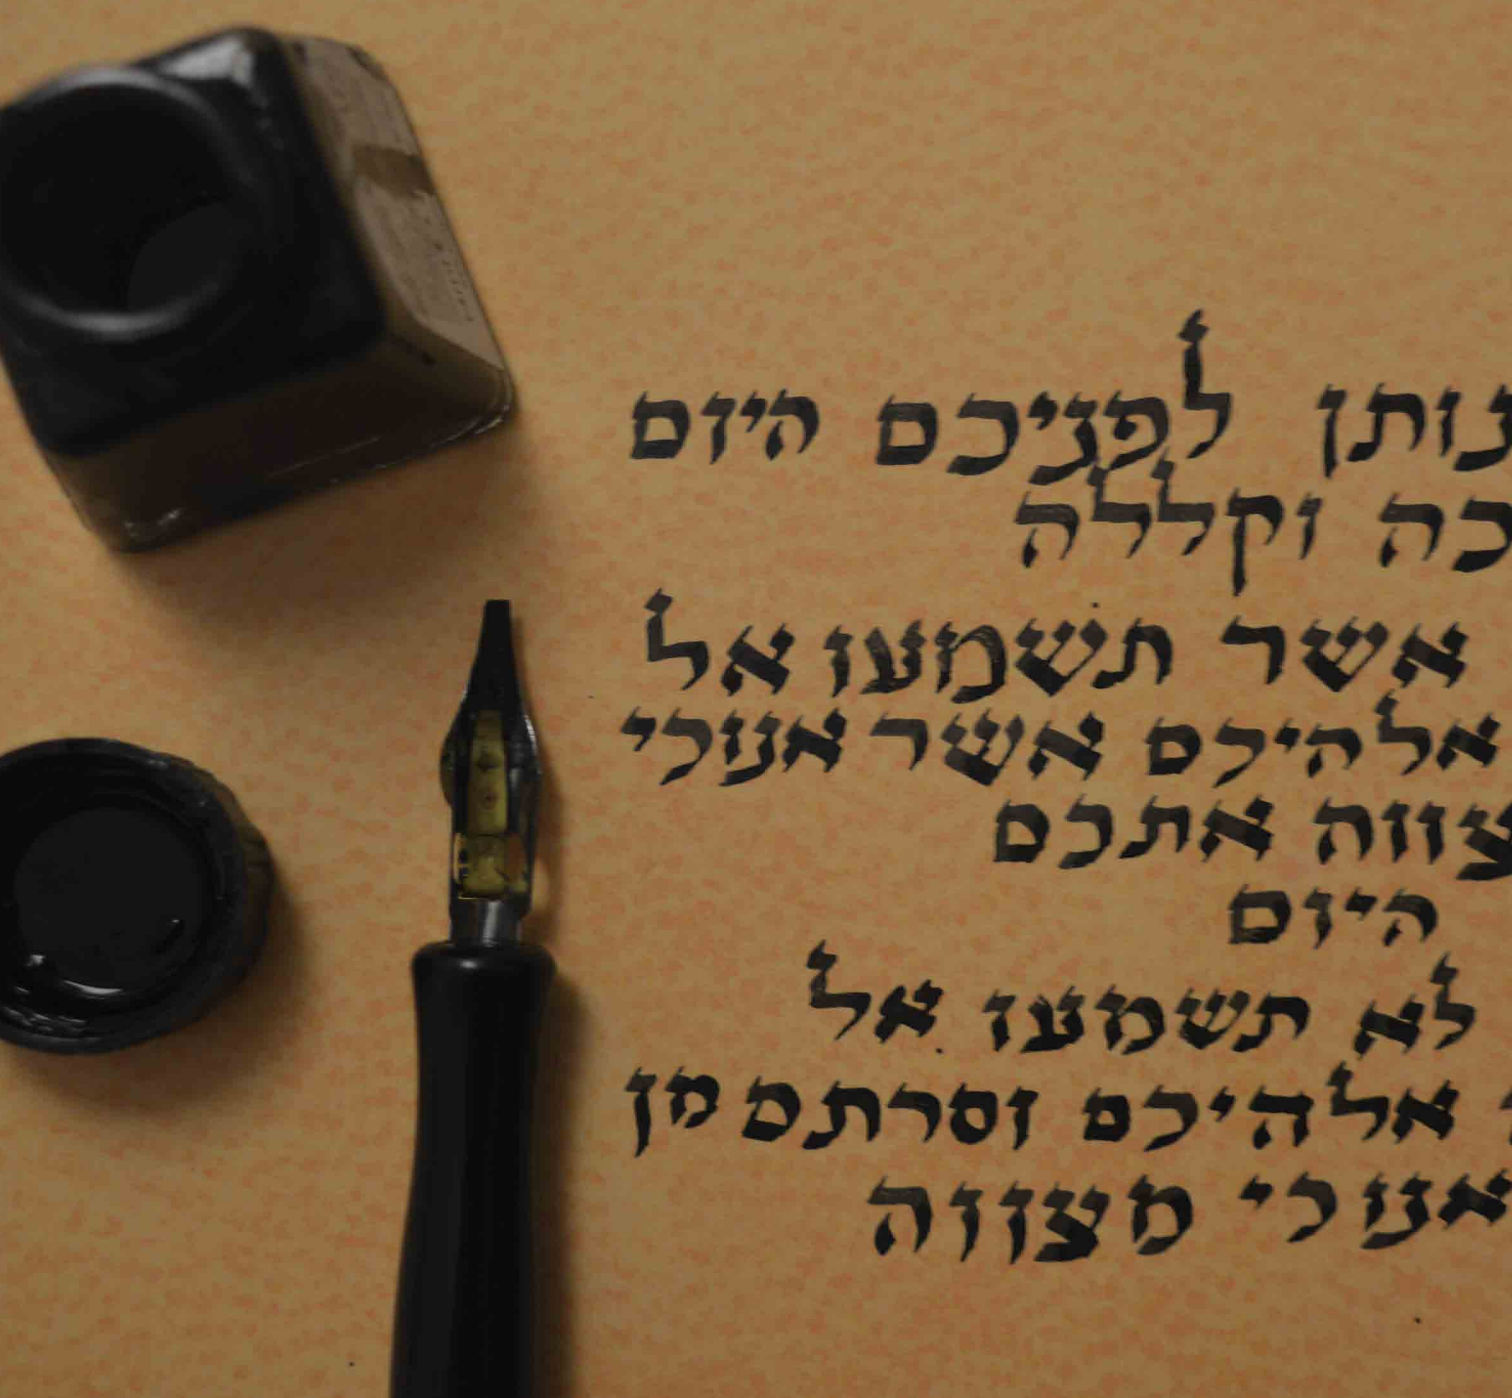 נותן לפניכם היום
כה וקללה
אשר תשמעו אל
אלהיכם אשר אנוכי
צווה אתכם
היום
לא תשמעו אל
אלהיכם וסרתם מן
אנוכי מצווה